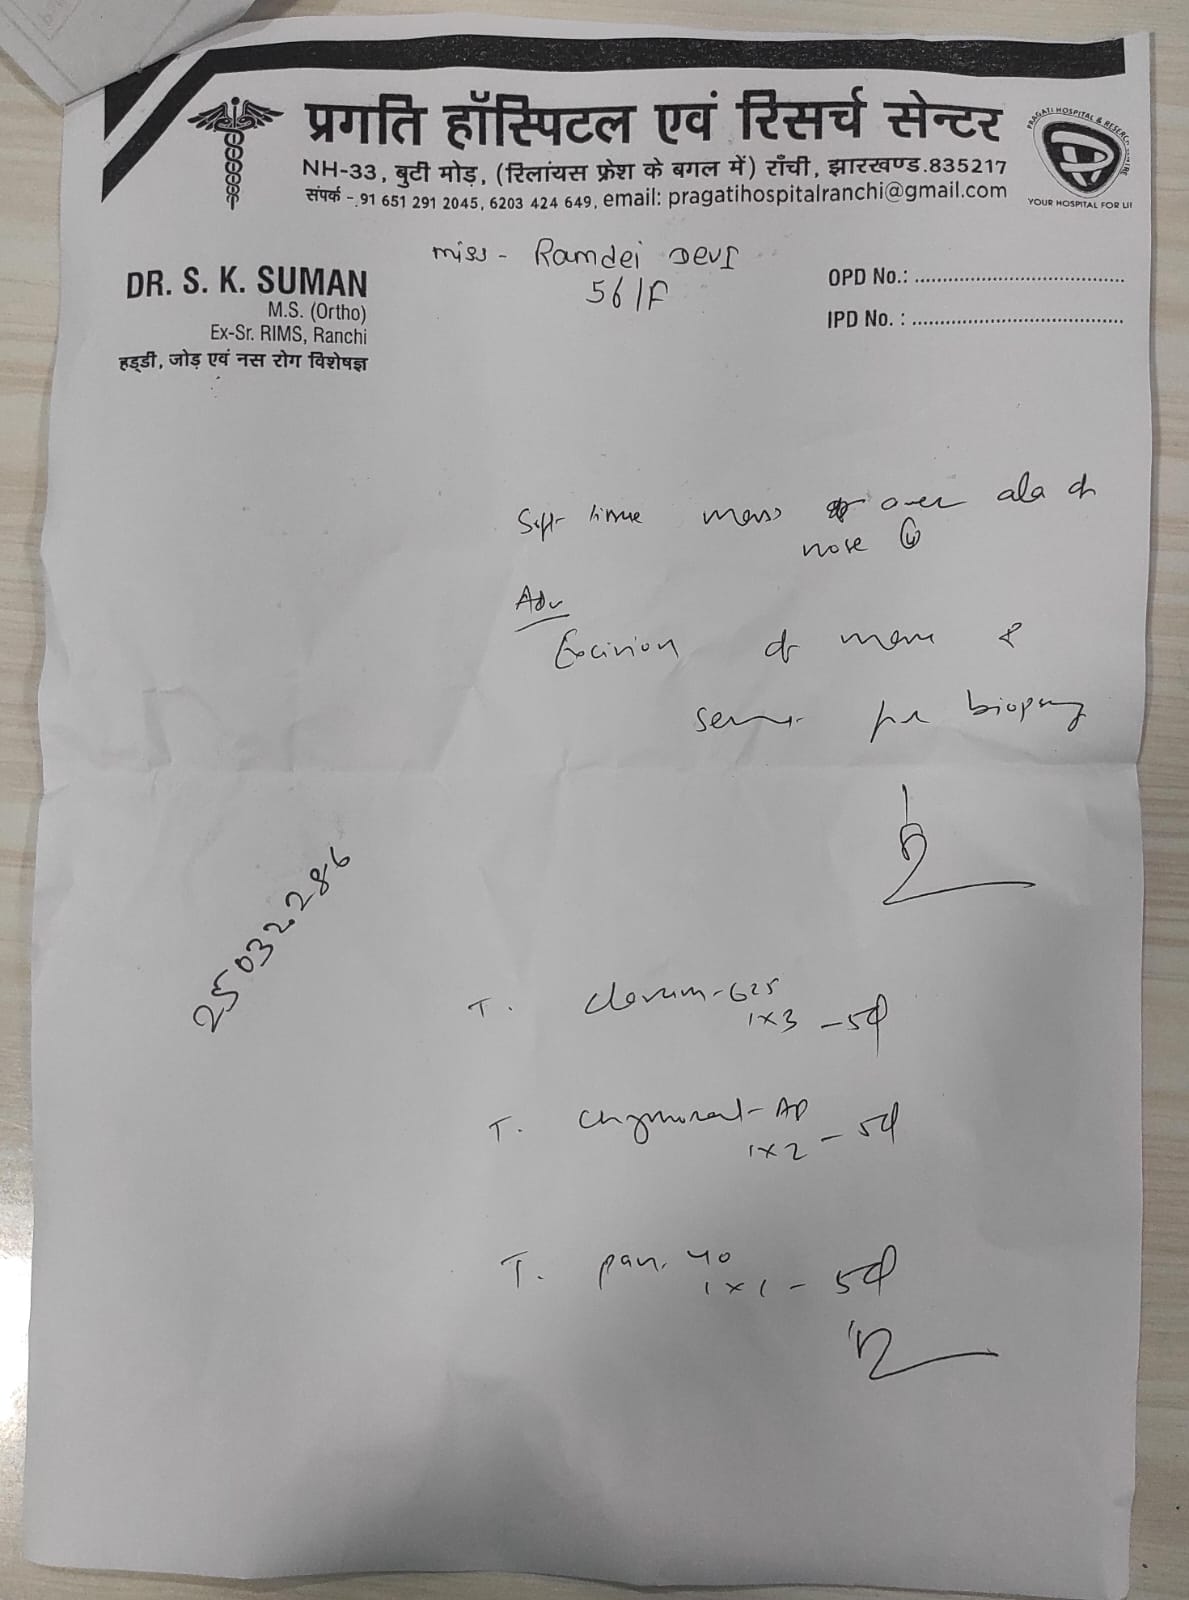 प्रगति हॉस्पिटल एवं रिसर्च सेन्टर
NH-33, बुटी मोड़, (रिलांयस फ्रेश के बगल में) राँची, झारखण्ड.835217
संपर्क - 91 651 291 2045, 6203 424 649, email: pragatihospitalranchi@gmail.com
PRAGATI HOSPITAL & RESERCH
YOUR HOSPITAL FOR LI
miss - Ramdei Devi
56/F
DR. S. K. SUMAN
M.S. (Ortho)
Ex-Sr. RIMS, Ranchi
हड्डी, जोड़ एवं नस रोग विशेषज्ञ
OPD No.: ........................................
IPD No. : ........................................
Soft tissue mass over ala of
nose
Adv
Excision of mass &
for biopsy
25032286
T. clavum-625
1x3 - 5d
T. chymoral-AP
1x2 - 5d
T. pan. 40
1x1 - 5d